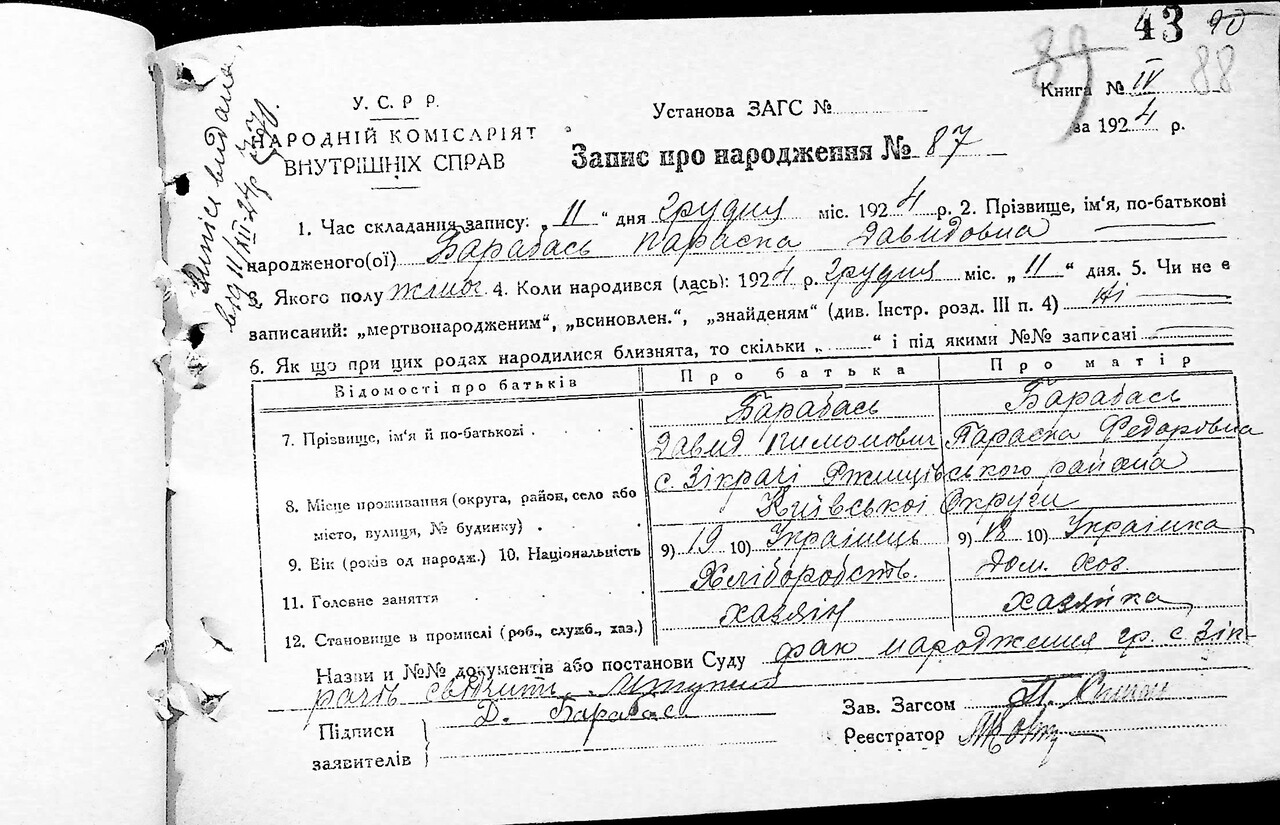 43 90
89 88
У. С. Р Р.
НАРОДНІЙ КОМІСАРІЯТ
ВНУТРІШНІХ СПРАВ
Установа ЗАГС №
Книга № IV
за 1924 р.
Запис про народження № 87
Витісь видана
від 11/XII-24р
1. Час складання запису: „11“ дня грудня міс. 1924 р. 2. Прізвище, ім'я, по-батькові
народженого(ої) Барабась Параска Давидовна
3. Якого полу жіноч 4. Коли народився (лась): 1924 р. грудня міс. „11“ дня. 5. Чи не є
записаний: „мертвонародженим“, „всиновлен.“, „знайденям“ (див. Інстр. розд. III п. 4) Ні
6. Як що при цих родах народилися близнята, то скільки „ “ і під якими №№ записані
Відомості про батьків Про батька Про матір
7. Прізвище, ім'я й по-батькові Барабась Барабась
Давид Пимонович Параска Федоровна
8. Місце проживання (округа, район, село або
місто, вулиця, № будинку)
с. Зікрачі Ржищівського района
Київської Округи
9. Вік (років од народж.) 10. Національність 9) 19 10) Українець 9) 18 10) Українка
11. Головне заняття Хліборобств. дом. хоз.
12. Становище в промислі (роб., служб., хаз.) хазяїн хазяйка
Назви и №№ документів або постанови Суду фак народження гр. с Зік-
рачь
Підписи
заявителів
Д. Барабась
Зав. Загсом
Реєстратор